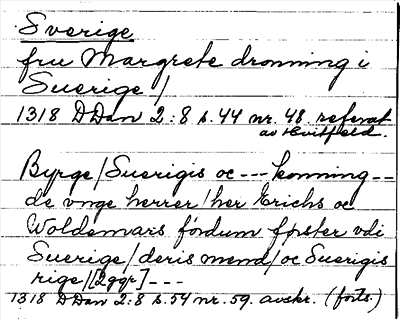 Sverige
fru Margrete dronning i
Suerige /
1318 DDan 2:8 s.44 nr. 48. referat
av Hvitfeld.
Byrge / Suerigis oc --- konning --
de vnge herrer / her Erichs oc
Woldemars fordum førster vdi
Suerige / deris mend / oc Suerigis
rige / [2ggr] ---
1318 DDan 2:8 s.54 nr. 59. avskr. (forts.)